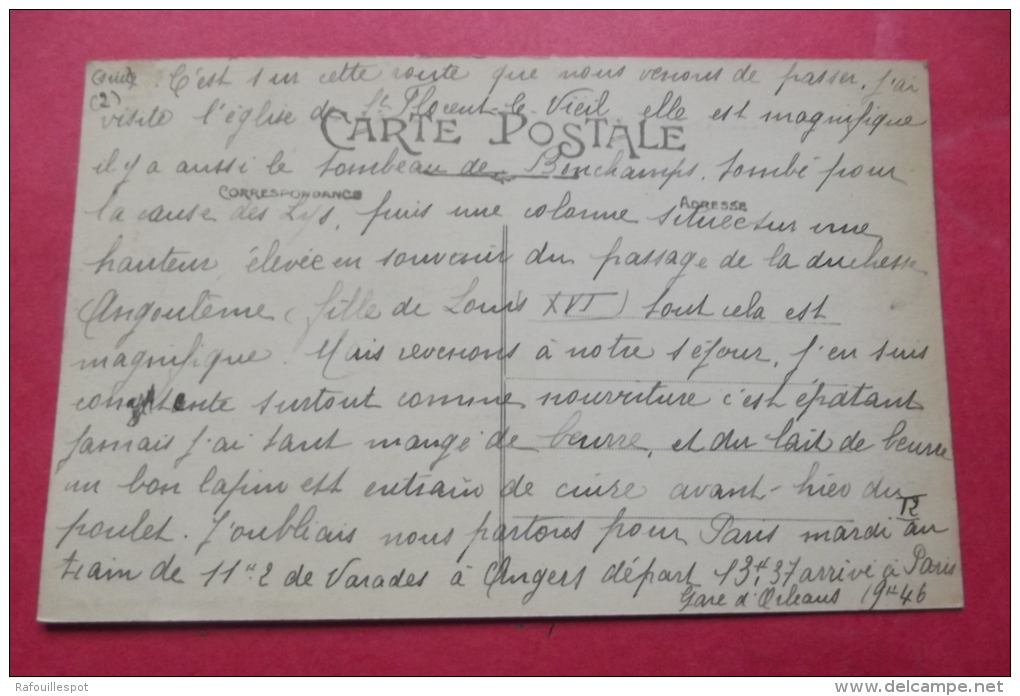 (suite) C'est sur cette route que nous venons de passer, j'ai
(2)
visité l'église de St Florent-le-Vieil elle est magnifique
CARTE POSTALE
il y a aussi le tombeau de Bonchamps, tombé pour
CORRESPONDANCE
ADRESSE
la cause des Lys, puis une colonne située sur une
hauteur, élevée en souvenir du passage de la duchesse
Angoulême (fille de Louis XVI) tout cela est
magnifique. Mais revenons à notre séjour, j'en suis
contente surtout comme nourriture c'est épatant
jamais j'ai tant mangé de beurre, et du lait de beurre
un bon lapin est entrain de cuire avant-hier du
poulet. J'oubliais nous partons pour Paris mardi 12 au
train de 11H2 de Varades à Angers départ 13H37 arrivé à Paris
Gare d'Orléans 19H46
Rafouillespot
delcampe.net